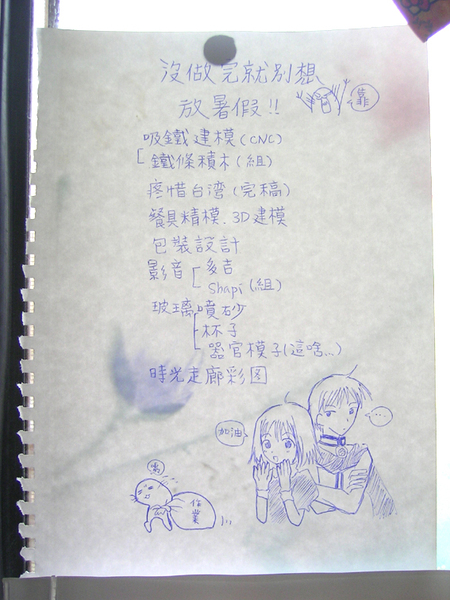 沒做完就別想
放暑假!!
靠
吸鐵建模(CNC)
鐵條積木(組)
疼惜台灣(完稿)
餐具精模、3D建模
包裝設計
影音
多吉
Shapi(組)
玻璃噴砂
杯子
器官模子(這啥...)
時光走廊彩图
加油
...
作業